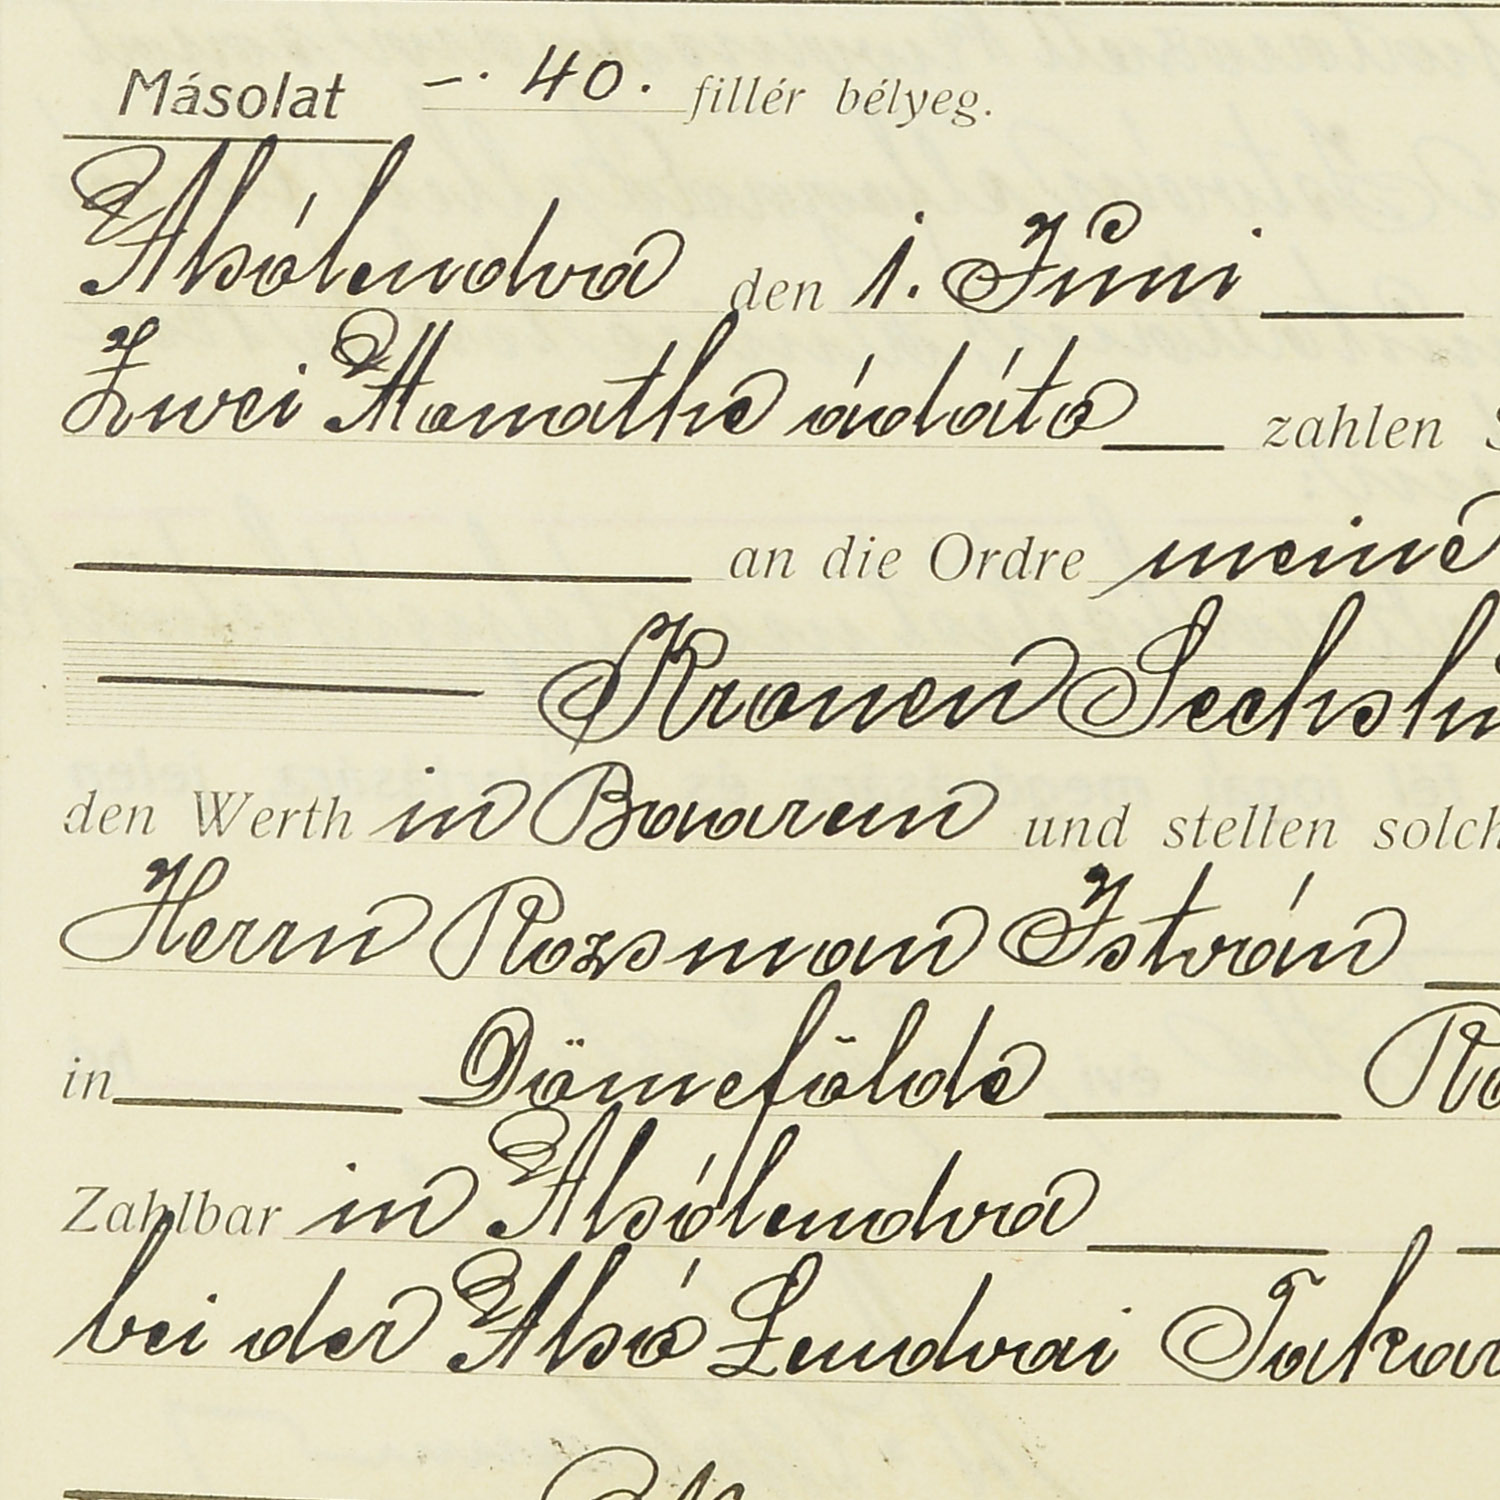 Másolat —. 40. fillér bélyeg.
Alsólendva den 1. Juni
Zwei Monathe ádáto zahlen
an die Ordre meine
Kronen Sechshu
den Werth in Baarem und stellen solch
Herrn Rozsman István
in Dömefölde Ro
Zahlbar in Alsólendva
bei der Alsó Lendvai Takar